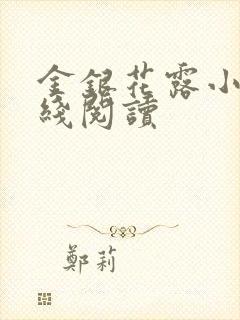 金銀花露小
綫閱讀
鄭莉